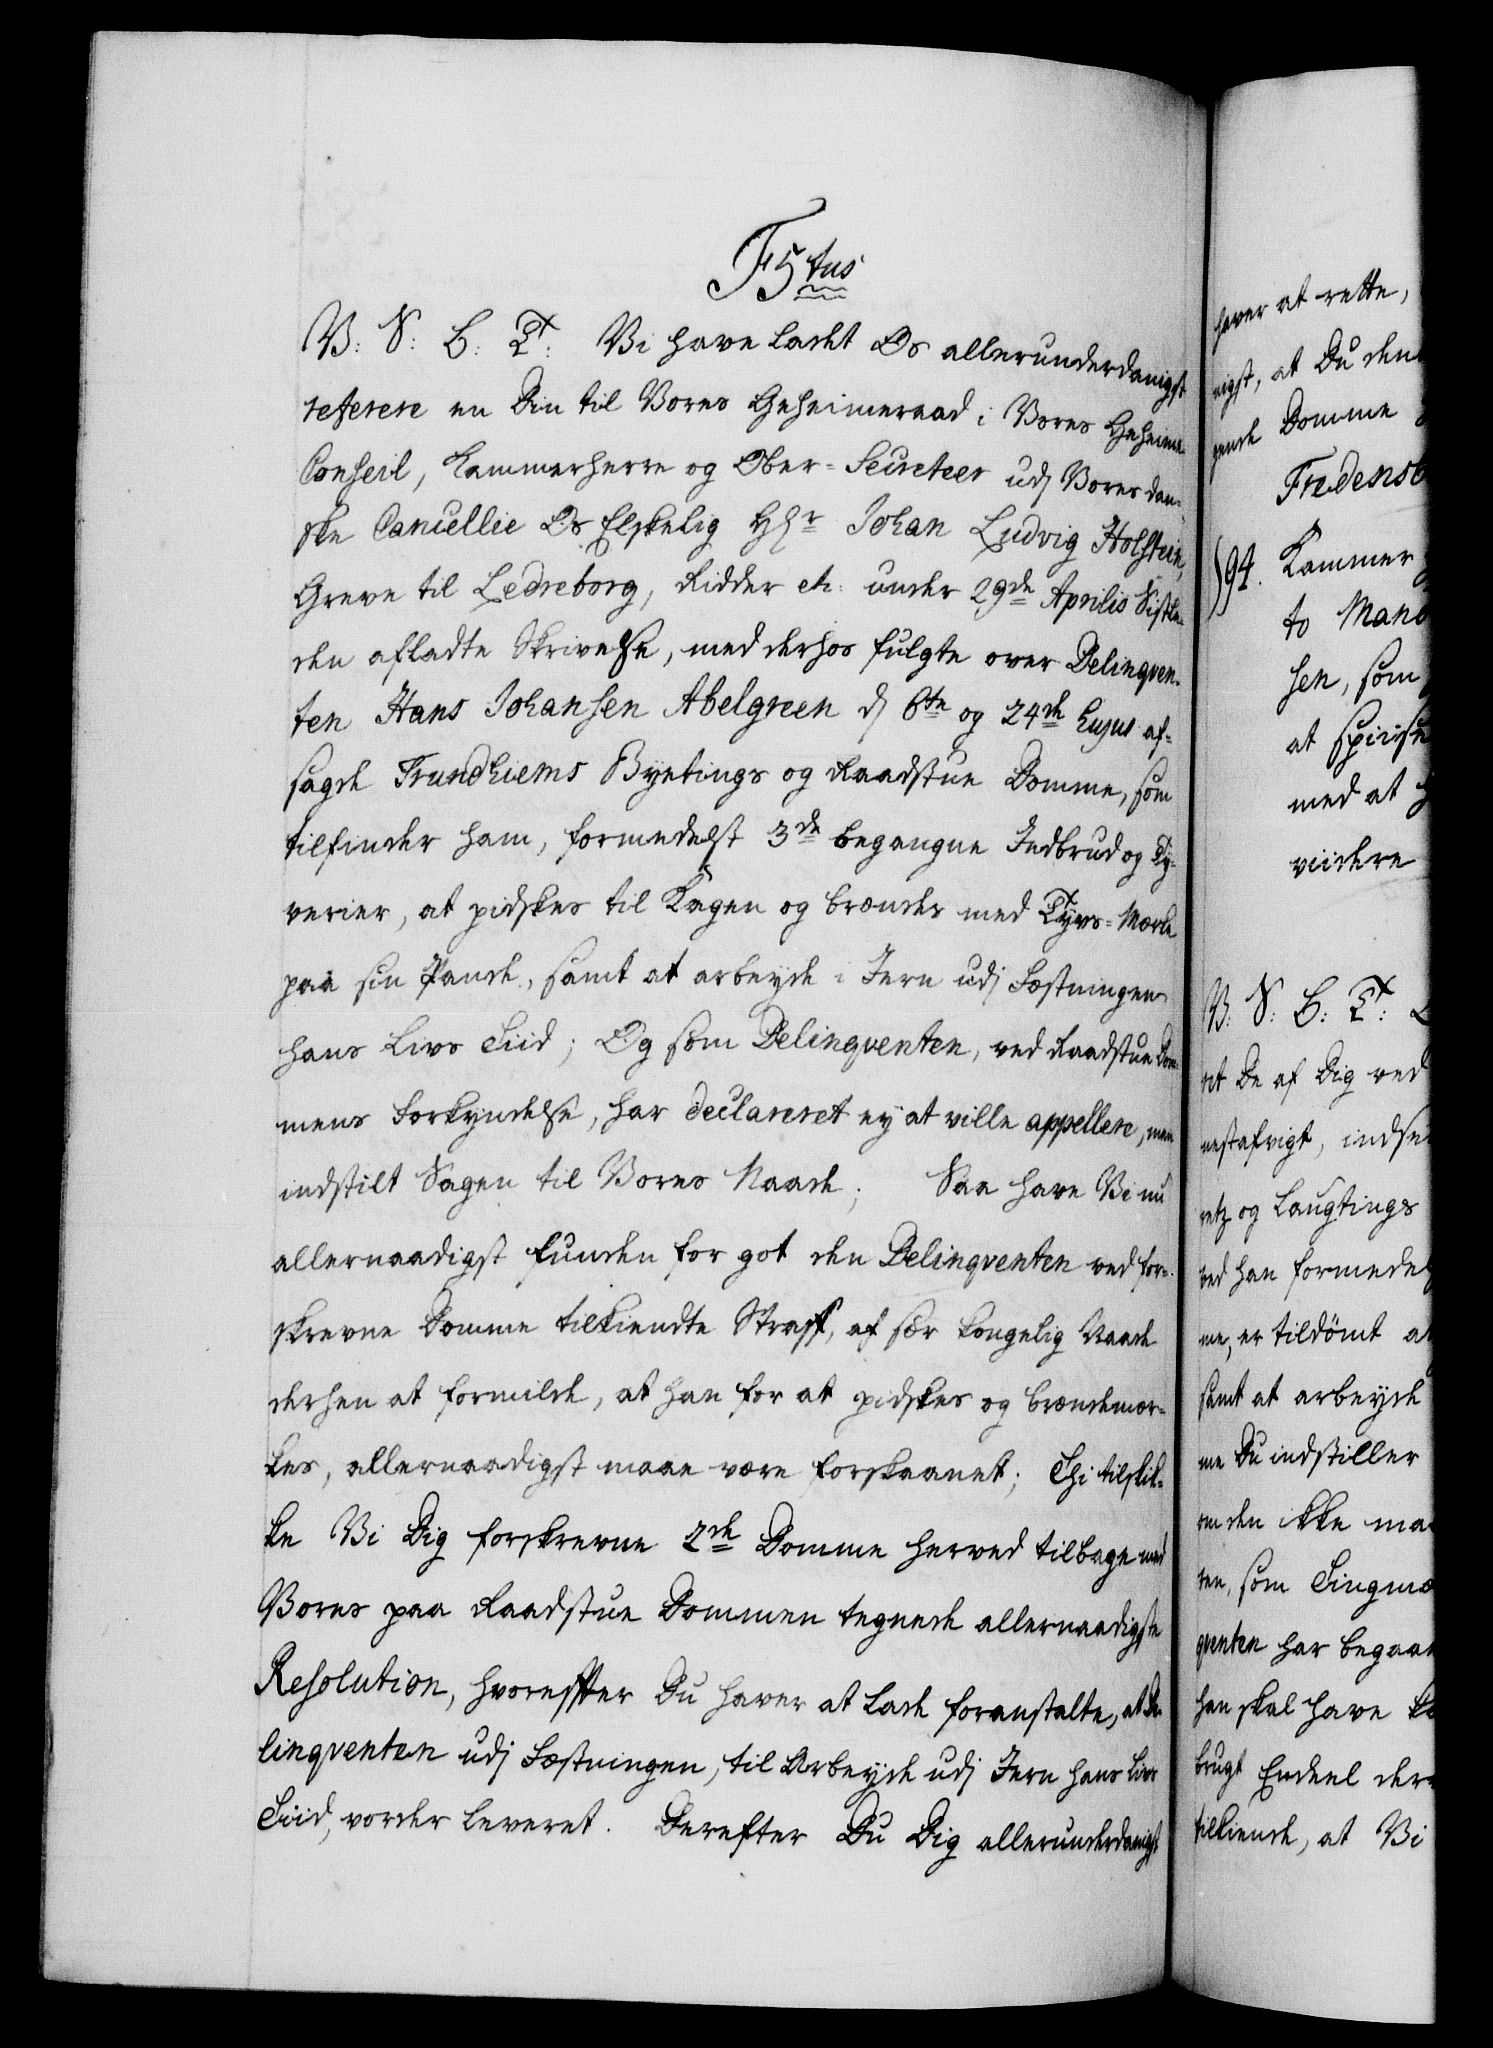 F5tus
V: S: B: T: Vi have ladet Os allerunderdanigst
referere en Din til Vores Geheimeraad i Vores Geheime
Conseil, Kammerherre og Ober-Secreteer udj Vores dan-
ske Cancellie Os Elskelig Hr Johan Ludvig Holstein,
Greve til Ledreborg, Ridder etc. under 29de Aprilis Sistle-
den afladte Skrivelse, med derhos fulgte over Delinqven-
ten Hans Johansen Abelgreen d 6te og 24de hujus af-
sagde Trundhiems Byetings og Raadstue Domme, som
tilfinder ham, formedelst 3de begangne Indbrud og Ty-
verier, at pidskes til Kagen og brændes med Tyvs-Mærke
paa sin Pande, samt at arbeyde i Jern udj Fæstningen
hans Livs Tiid; Og som Delinqventen, ved Raadstue Dom-
mens Forkyndelse, har declareret ey at ville appellere, men
indstilt Sagen til Vores Naade; Saa have Vi nu
allernaadigst funden for got den Delinqventen ved for-
skrevne Domme tilkiendte Straff, af sær kongelig Naade
derhen at formilde, at han for at pidskes og brændemær-
kes, allernaadigst maae være forskaanet; Thi tilskik-
ke Vi Dig forskrevne 2de Domme herved tilbage med
Vores paa Raadstue Dommen tegnede allernaadigste
Resolution, hvorefter Du haver at lade foranstalte, at De-
linqventen udj Fæstningen, til Arbeyde udj Jern hans Livs
Tiid, vorder leveret. Derefter Du Dig allerunderdanigst
haver at rette,
nigst, at Du den
gende Domme
Fredensb
94. Kammer
to Mand
sen, som
at spiise
med at
viidere
V: S: B: T:
ret De af Dig ved
nestafvigt, indse
retz og Laugtings
ved han formedelst
me, er tildømt at
samt at arbeyde
me Du indstiller
om den ikke ma
ten, som Tingmæ
qventen har begaa
han skal have
brugt Endeel der
tilkiende, at Vi